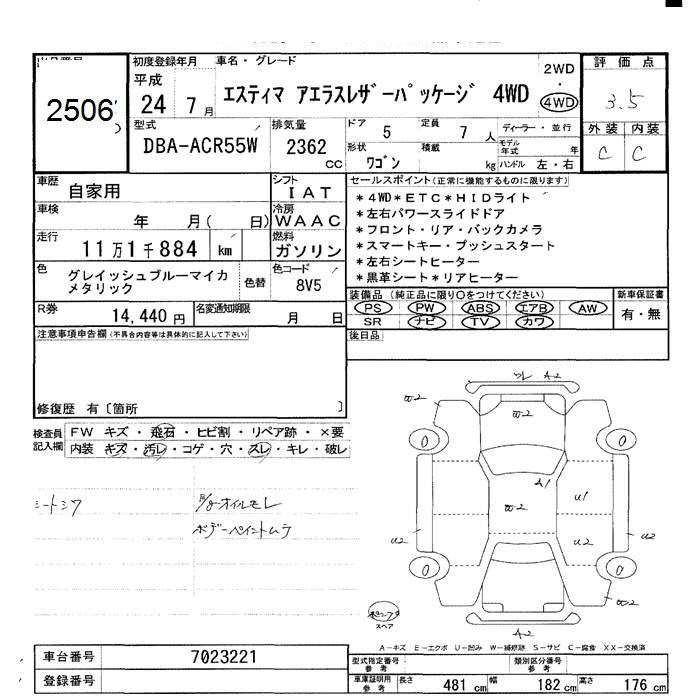 初度登録年月
車名・グレード
評価点
2506
平成
24年7月
エスティマ アエラスレザーパッケージ 4WD
2WD
・
4WD
3.5
型式
DBA-ACR55W
排気量
2362
CC
ドア
5
定員
7人
ディーラー・並行
外装
内装
C
C
形状
ワゴン
積載
kg
モデル年式
年
ハンドル 左・右
車歴
自家用
シフト
IAT
セールスポイント(正常に機能するものに限ります)
車検
年 月( 日)
冷房
WAAC
*4WD*ETC*HIDライト
*左右パワースライドドア
*フロント・リア・バックカメラ
*スマートキー・プッシュスタート
*左右シートヒーター
*黒革シート*リアヒーター
走行
11万1千884
km
燃料
ガソリン
色
グレイッシュブルーマイカ
メタリック
色替
色コード
8V5
装備品(純正品に限り○をつけてください)
新車保証書
PS PW ABS エアB AW
SR ナビ TV カワ
有・無
R券
14,440円
名変通知期限
月 日
注意事項申告欄(不具合内容等は具体的に記入して下さい)
後日品
修復歴 有〔箇所 〕
検査員
記入欄
FW キズ・飛石・ヒビ割・リペア跡・×要
内装 キズ・汚レ・コゲ・穴・スレ・キレ・破レ
シートシワ
オイルモレ
ボデーペイントムラ
A2
W2
W2
A1
U1
W2
U2
U2
U2
W2
A2
スペア
A-キズ E-エクボ U-凹み W-補修跡 S-サビ C-腐食 XX-交換済
車台番号
7023221
登録番号
型式指定番号
参考
類別区分番号
参考
車庫証明用
参考
長さ
481cm
幅
182cm
高さ
176cm